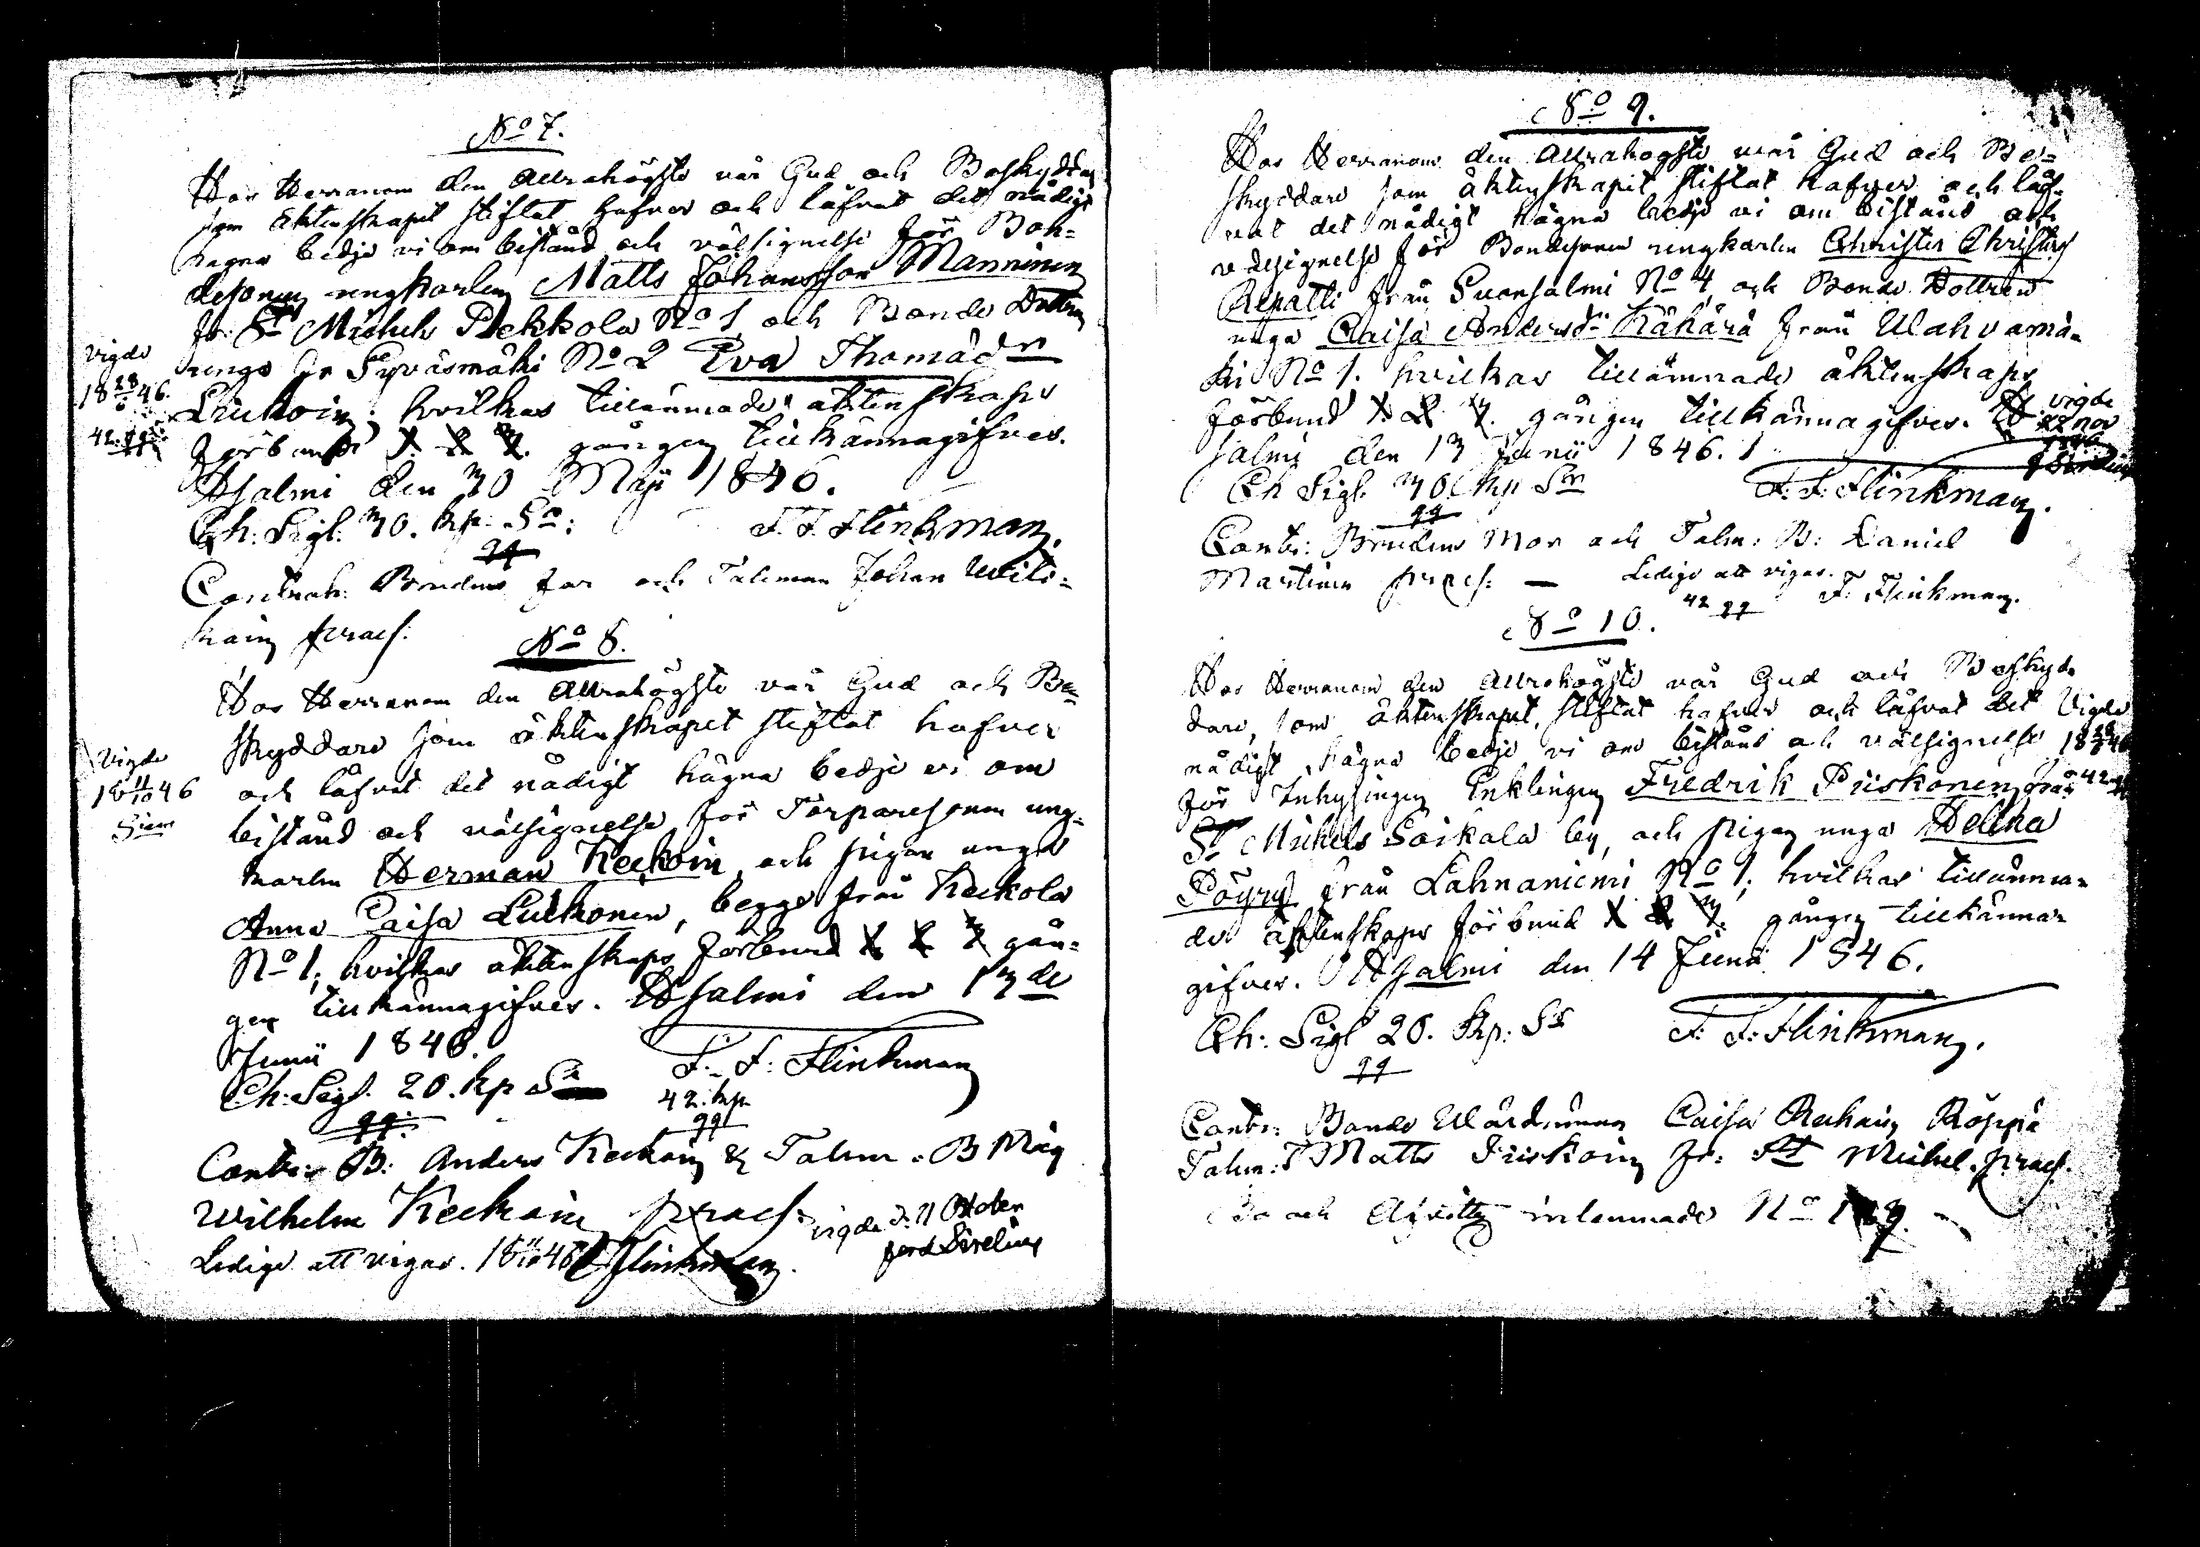 No 7.
Hos Herranom den Allrahögste vår Gud och Beskyddare
som äktenskapet stiftat hafver och låfvat det nådigt
hägna bedje vi om bistånd och välsignelse för Bon-
desonen ungkarlen Matts Johansson Manninen
fr. St Michels Pekkola No 1 och Bonde Dottren
unga fr Syväsmäki No 2 Eva Thomasdr
hvilkas tillämnade äktenskaps
förbund 1. 2. 3. gången tillkännagifves.
Hsalmi den 30 Maji 1846.
Ch. Sigl. 30. kp. Sr:
F. F. Flinkman.
Contrah: Brudens far och Taleman Johan
præs.
Vigde
18 28/6 46.
No 8.
Hos Herranom den Allrahögste vår Gud och Be-
skyddare som äktenskapet stiftat hafver
och låfvat det nådigt hägna bedje vi om
bistånd och välsignelse för Torparesonen ung-
karlen Herman Keckoin och pigan unga
Anna Caisa Lulkonen, begge från Keckola
No 1; hvilkas äktenskaps förbund 1 2 3 gån-
gen tillkännagifves. Hsalmi den 13de
Junii 1846.
Ch: Sigl. 20. kp Sr
F. F: Flinkman
42. kp
Contr: B: Anders Keckoin & Talm: B Måg
Wilhelm Keckoin præs:
Ledige att vigas. 18 11/10 46 Flinkman.
vigde d. 11 October
Vigde
18 11/10 46
No 9.
Hos Herranom den Allrahögste vår Gud och Be-
skyddare som äktenskapet stiftat hafver och låf-
vat det nådigt hägna bedje vi om bistånd och
välsignelse för Bondesonen ungkarlen Christer Christers
Repatti från Suonsalmi No 4 och Bonde Dottren
unga Caisa Andersdr Kähärä från Wahvamä-
ki No 1. hvilkas tillämnade äktenskaps
förbund 1. 2. 3. gången tillkännagifves. H
salmi den 13 Junii 1846.
vigde
22 nov
Ch Sigl. 30. kp Sr
F. F. Flinkman.
Contr: Brudens Mor och Talm: B: Daniel
Martinen præs: — Ledige att vigas.
42
F. Flinkman.
No 10.
Hos Herranom den Allrahögste vår Gud och Beskyd-
dare, som äktenskapet stiftat hafver och låfvat det
nådigt hägna bedje vi om bistånd och välsignelse
för Inhysingen Enklingen Fredrik Piiskonen från
St Michels Soikala by, och pigan unga Helena
Pöyry från Lahnaniemi No 1; hvilkas tillämna-
de äktenskaps förbund 1 2 3. gången tillkänna-
gifves. Hsalmi den 14 Junii 1846.
Vigde
Ch: Sigl 20. Kp: Sr
F. F: Flinkman.
Contr: Bonde Caisa
Talm: Matts Piiskoin fr: St Michel. præs.